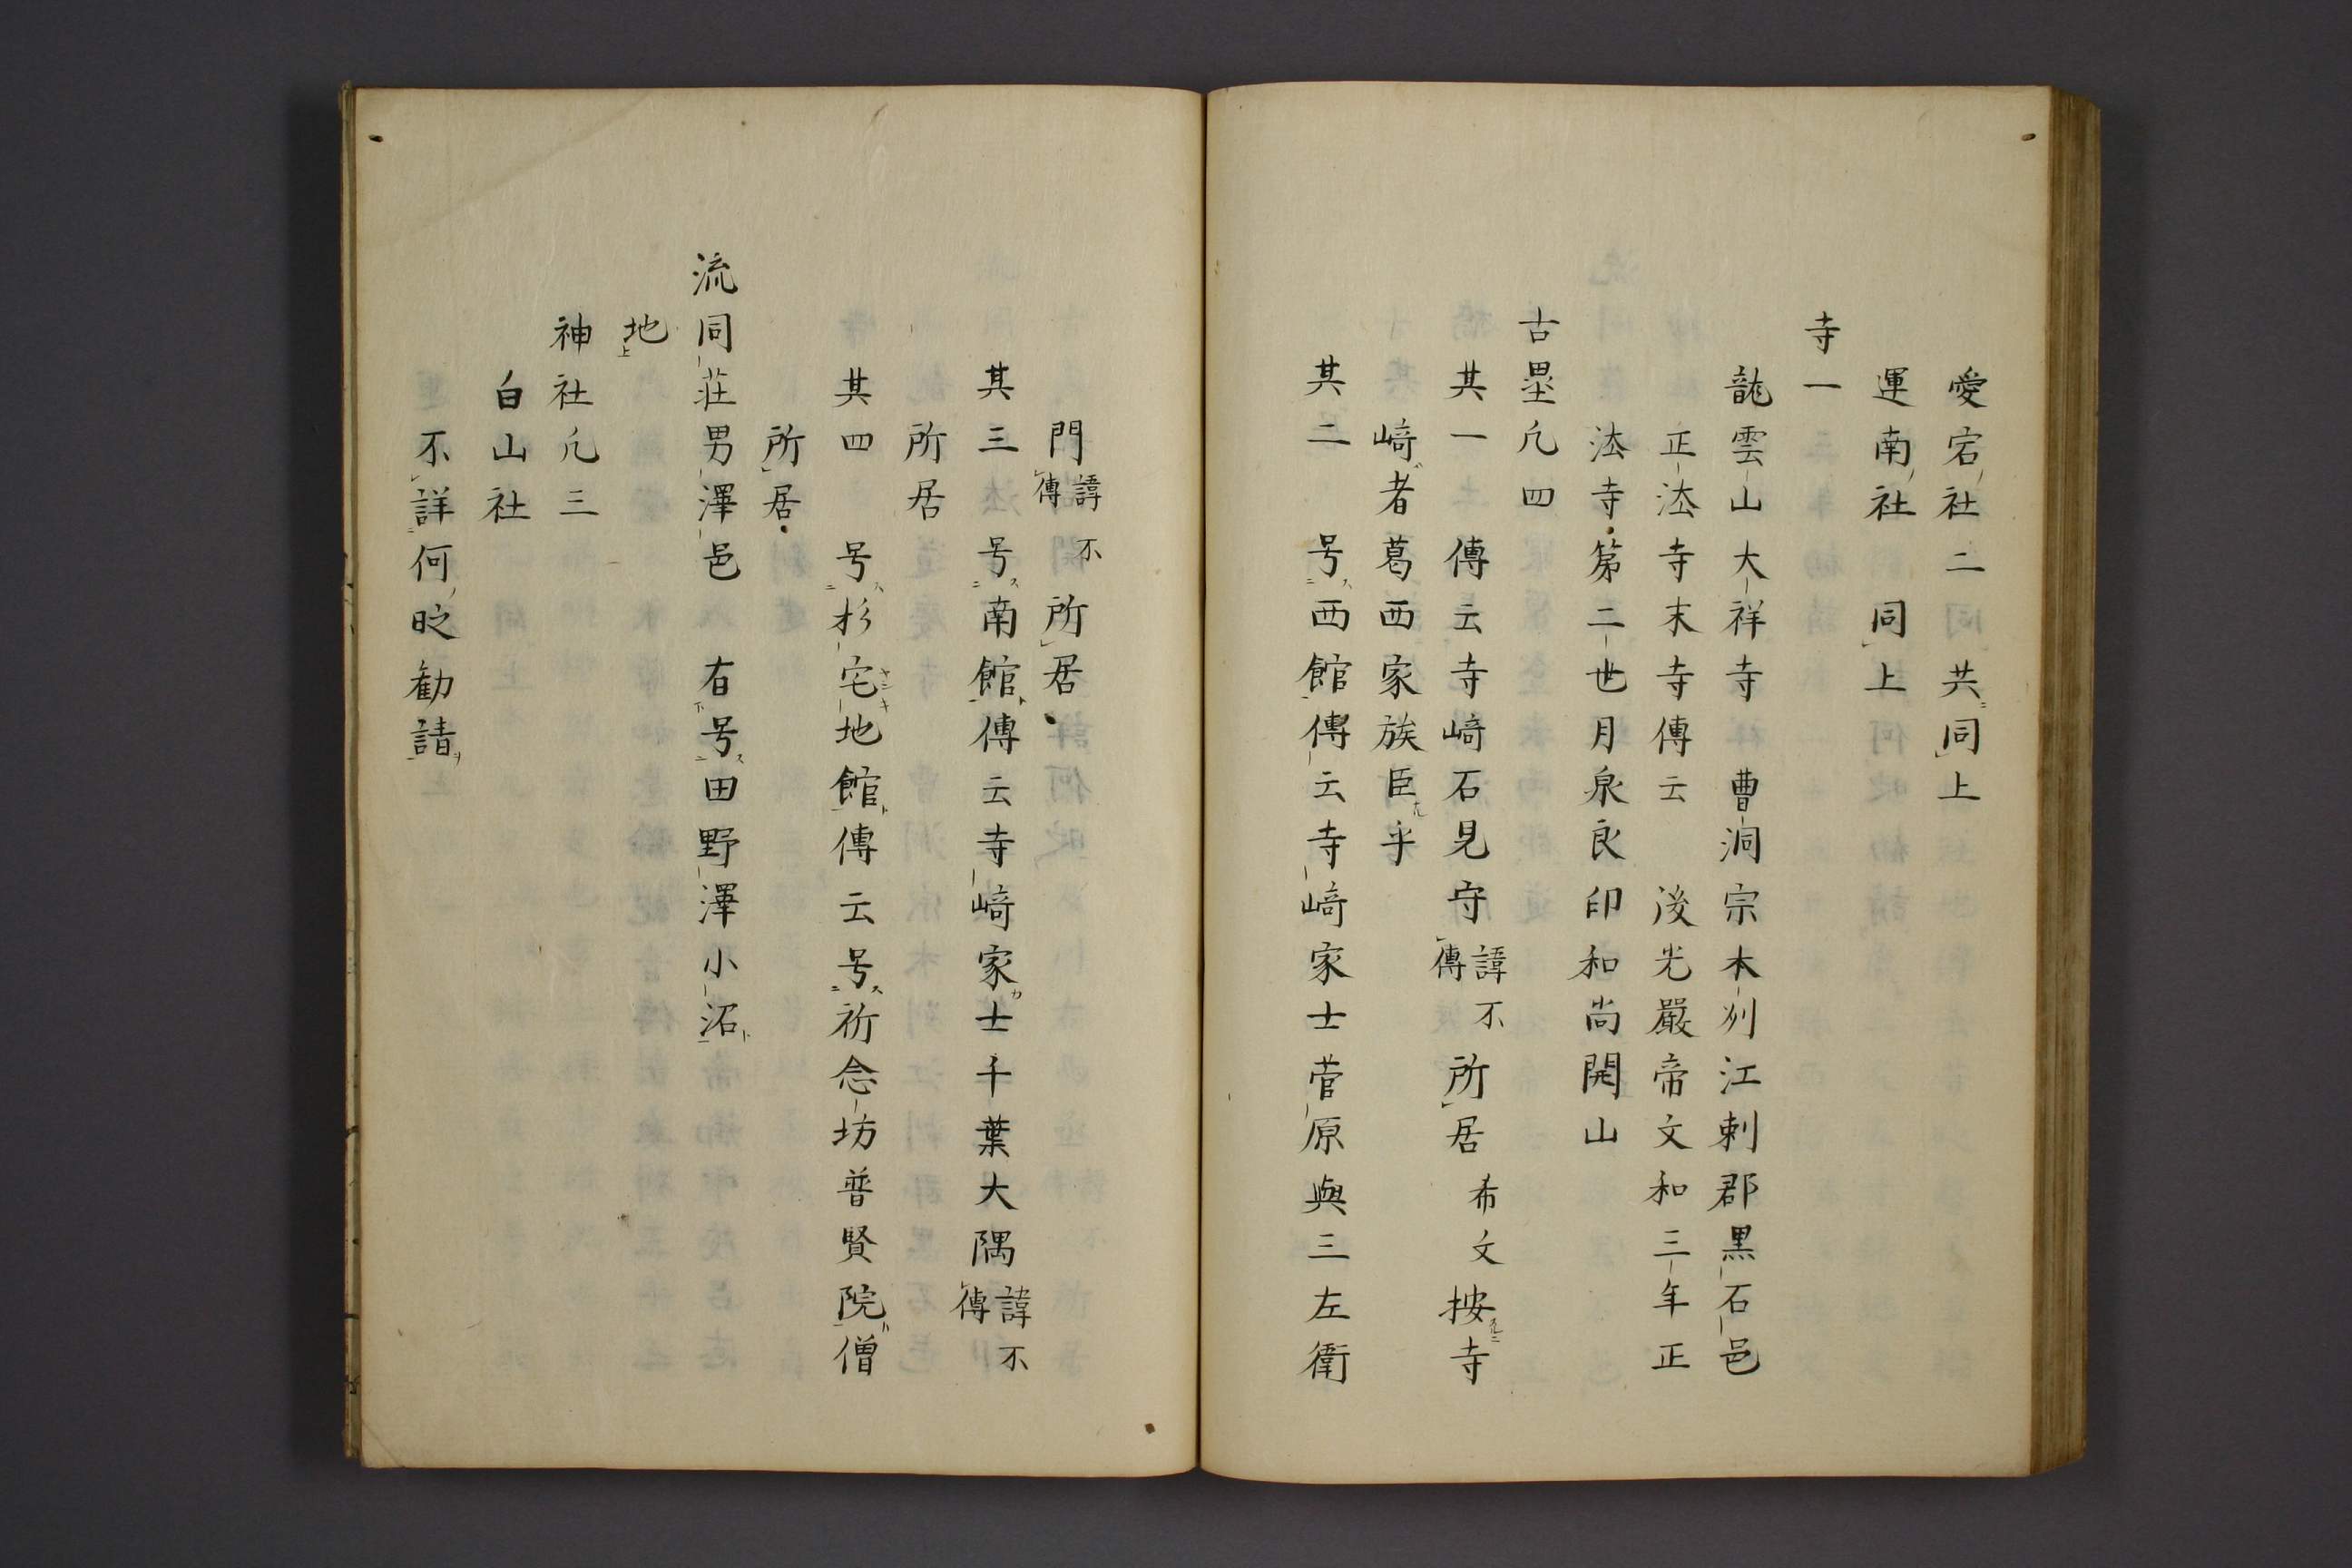 愛宕社二同共同上
運南社 同上
寺一
龍雲山大祥寺 曹洞宗本州江刺郡黒石邑
正法寺末寺傳云 後光嚴帝文和三年正
法寺第二世月泉良印和尚開山
古壘凢四
其一 傳云寺﨑石見守諱不傳所居 希文按寺
﨑者葛西家族臣乎
其二 号西館傳云寺﨑家士菅原與三左衛
門諱不傳所居
其三 号南館傳云寺﨑家士千葉大隅諱不傳
所居
其四 号杉宅地館傳云号祈念坊普賢院僧
所居
流同荘男澤邑 有号田野澤小沼
地
神社凢三
白山社
不詳何時勧請